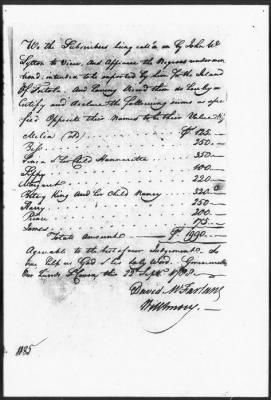 We the Subscribers being call'd on by John W
Lytton to View, And Appraise the Negroes undermen=
=tiond; intended to be exported by him to the Island
Of Tortola And having View'd them do hereby
Certify and declare the following sums as spe=
=cified Opposite their Names to be their Value Viz
Melia 125.—
Bess 250.—
Sara & her Child Hannaretta 350.—
Sippy 400
Margaret 220.—
Betsey King And her Child Nancy 320
Harry 250.—
Prince 200.—
James 175.—
Total Amount 1990.—
Agreeable to the best of our Judgement. So
help us God & his holy Word. Given under
Our hands St Croix this
David McFarlane
1185